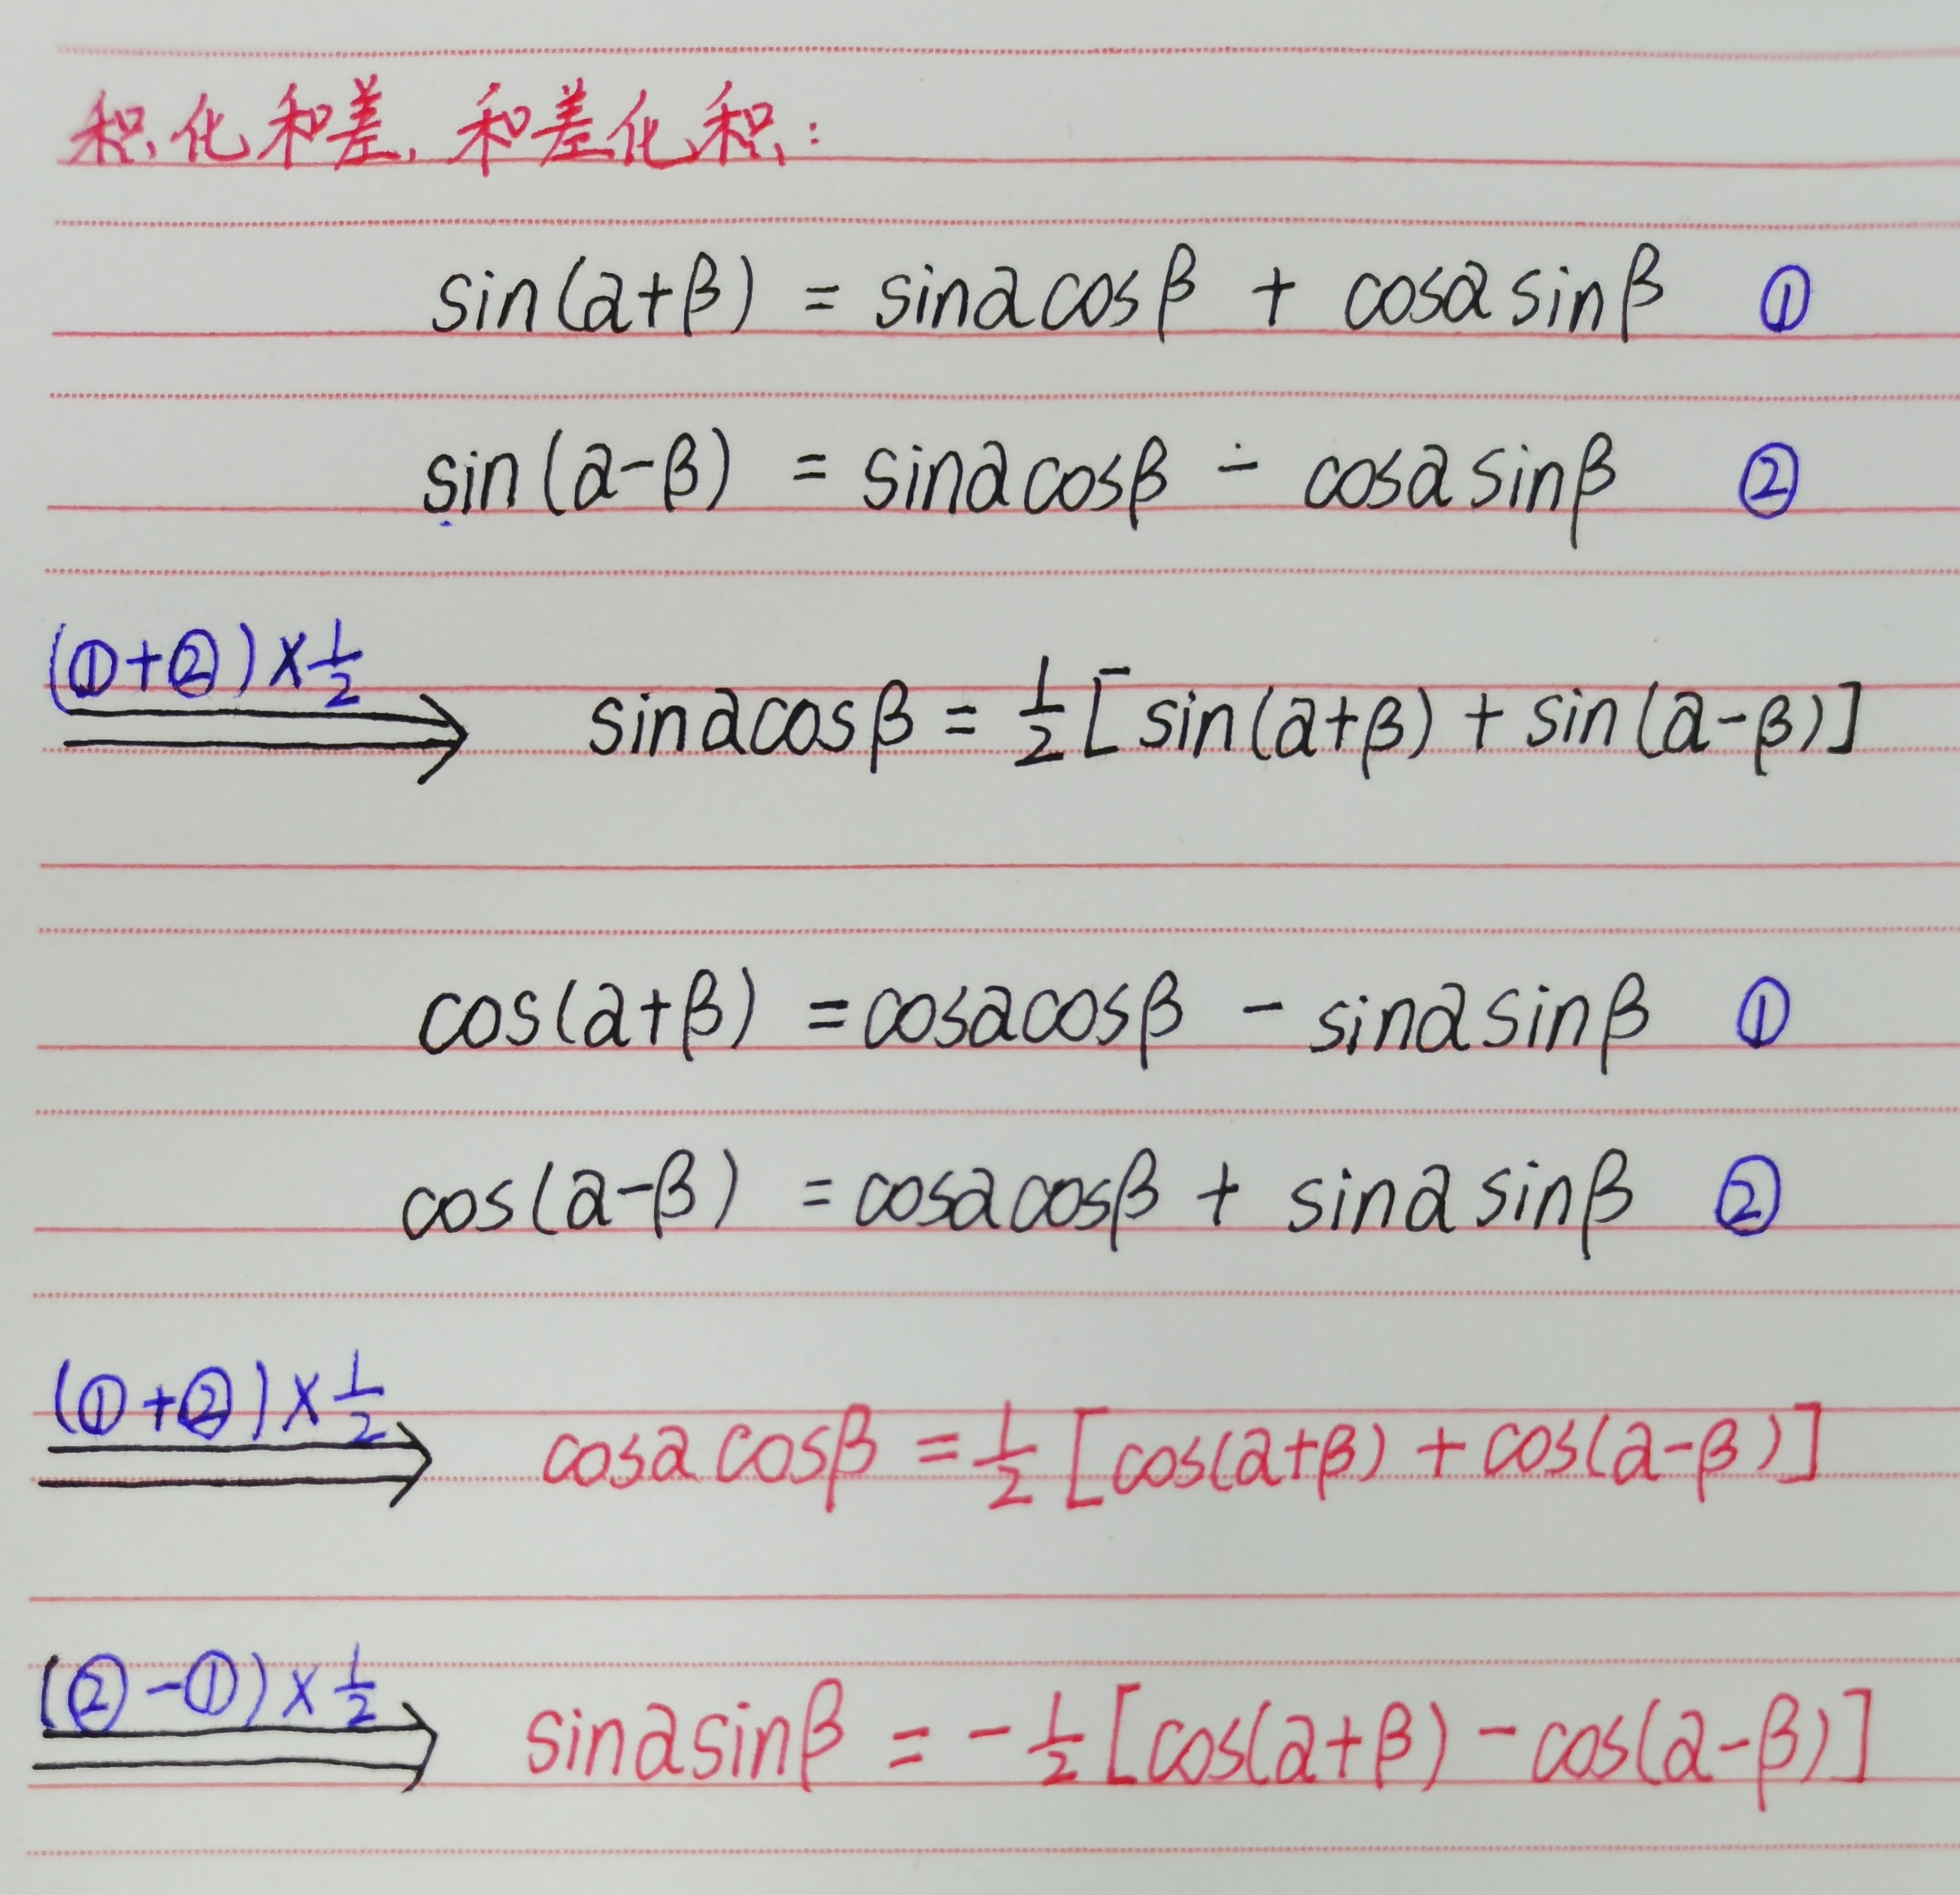 积化和差,和差化积:
sin(α+β) = sinαcosβ + cosαsinβ ①
sin(α-β) = sinαcosβ - cosαsinβ ②
(①+②)×1/2
⇒ sinαcosβ = 1/2[sin(α+β) + sin(α-β)]
cos(α+β) = cosαcosβ - sinαsinβ ①
cos(α-β) = cosαcosβ + sinαsinβ ②
(①+②)×1/2
⇒ cosαcosβ = 1/2[cos(α+β) + cos(α-β)]
(②-①)×1/2
⇒ sinαsinβ = -1/2[cos(α+β) - cos(α-β)]